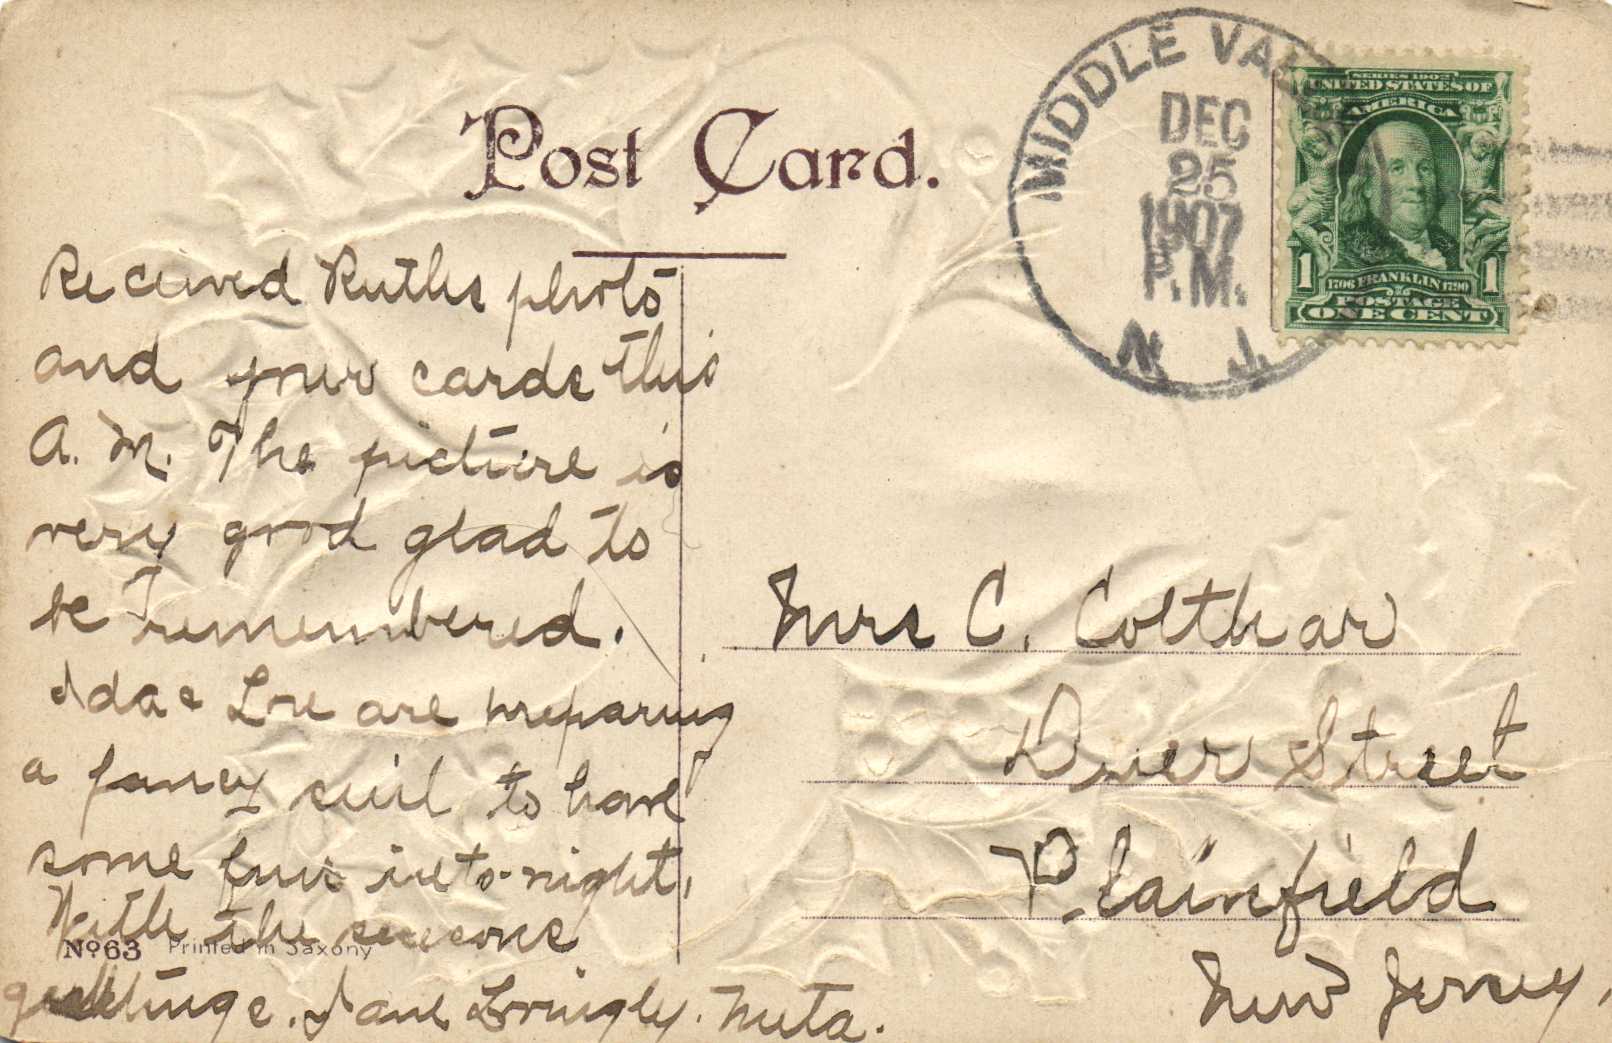 Post Card.
MIDDLE VAL
DEC
25
1907
P.M.
N. J.
SERIES 1902
UNITED STATES OF
AMERICA
1 1706 FRANKLIN 1790 1
POSTAGE
ONE CENT
Received Ruths photo
and your cards this
A.M. The picture is
very good glad to
be remembered.
Ida & are preparing
a fancy to have
some fun to-night,
With the seasons
greetings. I am Lovingly. Meta.
Mrs C. Colthar
Duer Street
Plainfield
New Jersey.
No 63 Printed in Saxony